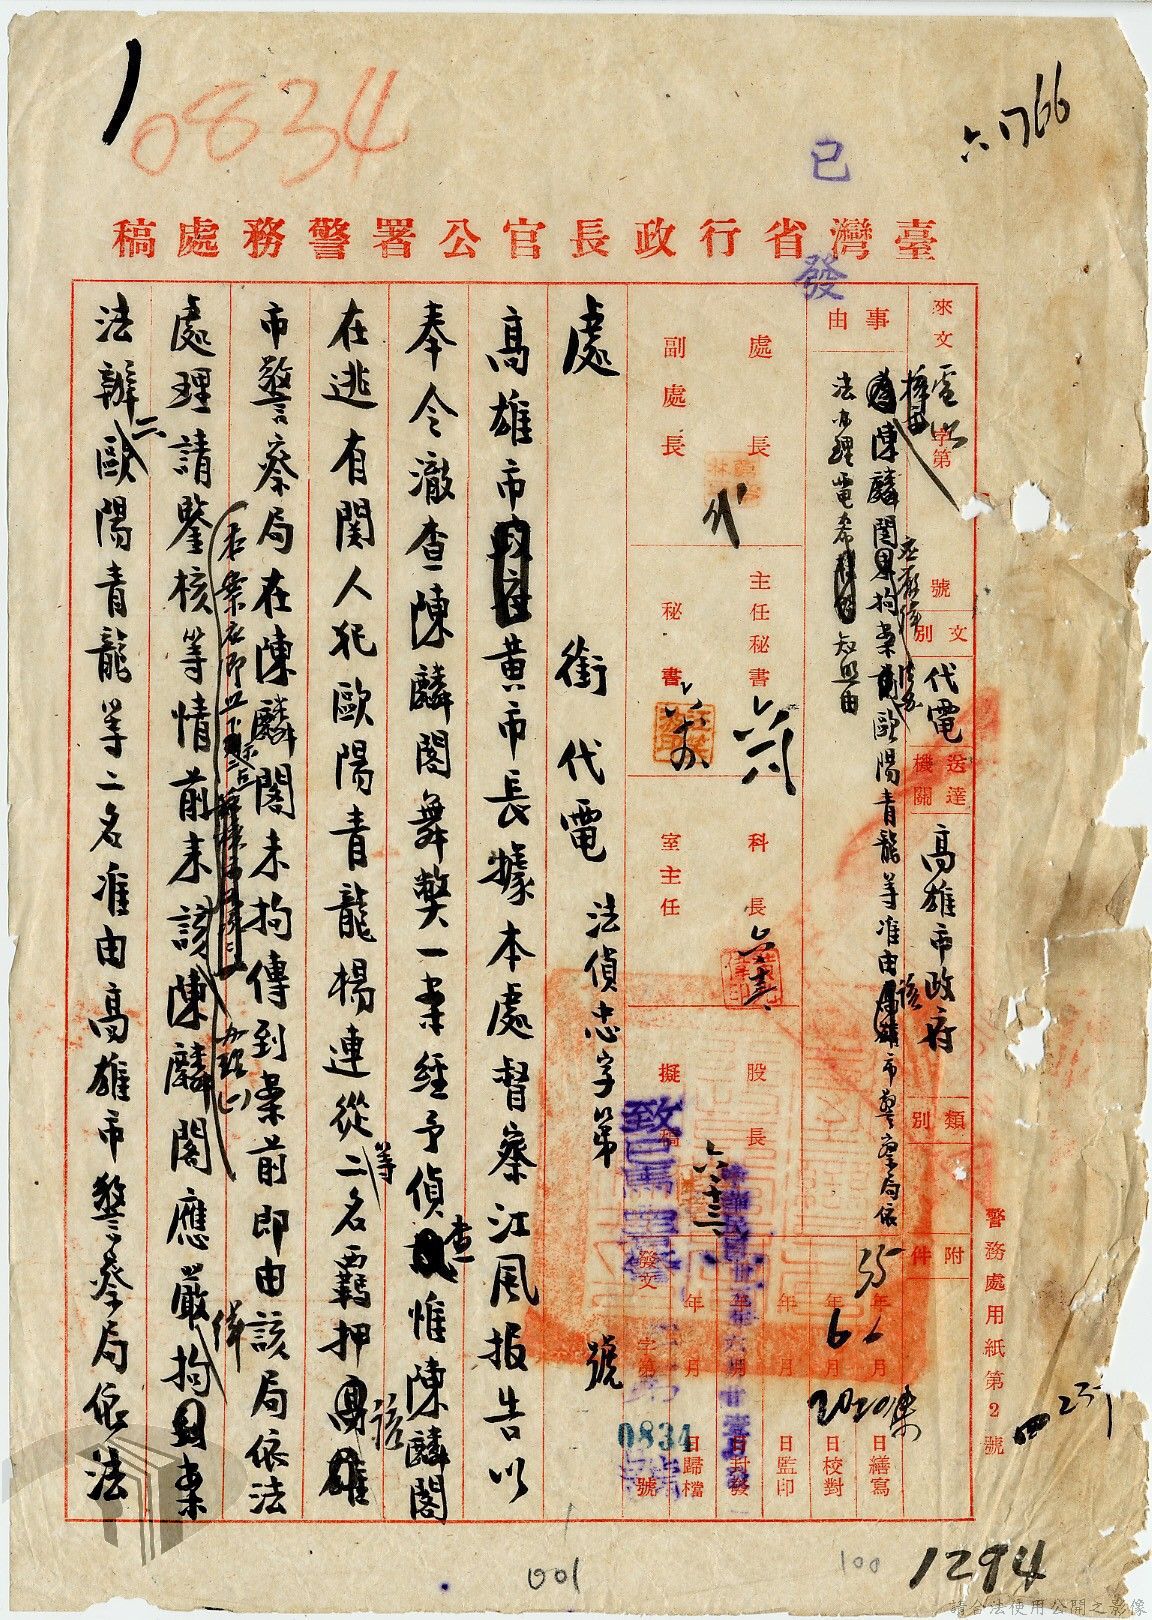 0834
六 月 66
已發
臺灣省行政長官公署警務處稿
來文
電 字第 號
文別
代電
送達機關
高雄市政府
類別
附件
事由
陳麟閣拘案前歐陽青龍等准由該市警察局依
法辦理電希知照由
處長
副處長
主任秘書
秘書
科長
室主任
股長
擬稿
年 月 日繕寫
年 月 日校對
年 月 日監印
年 月 日封發
年 月 日歸檔
發文 字第 0834 號
處 銜 代電 法偵忠字第 號
高雄市黃市長據本處督察江風报告以
奉令澈查陳麟閣舞獘一案經予偵查惟陳麟閣
在逃有関人犯歐陽青龍楊連從二名等羈押該
市警察局在陳麟閣未拘傳到案前即由該局依法
處理請鑒核等情前來該陳麟閣應嚴拘
法辦二歐陽青龍等二名准由高雄市警察局依法
警務處用紙第2號
001
100
1294
請合法使用公開之影像